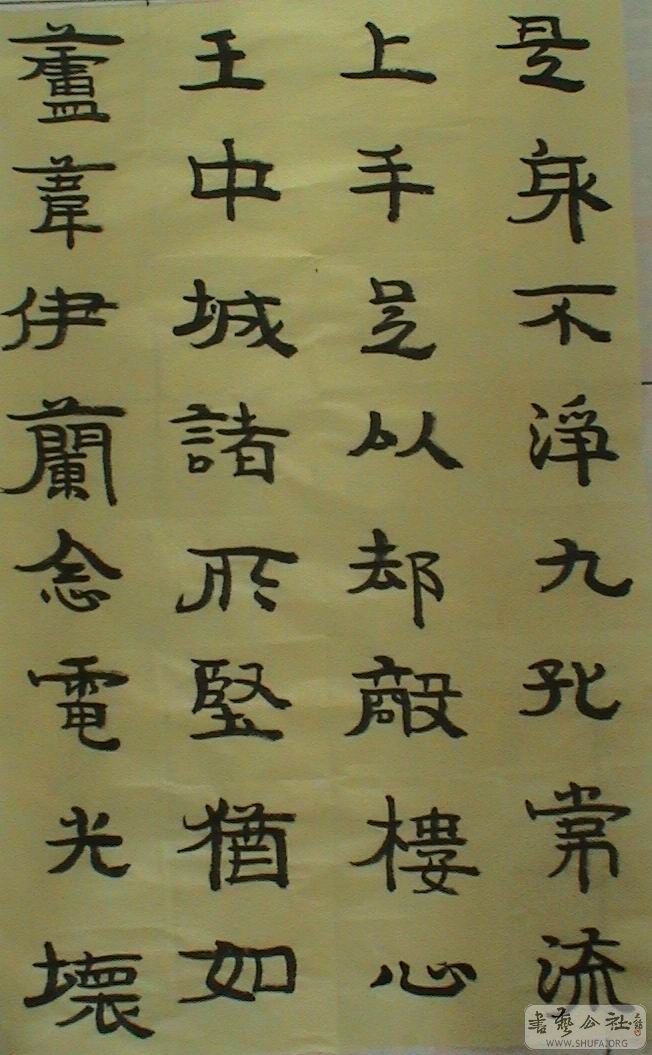 是身不淨九孔常流
上手足以却敵樓心
王中城諸所堅猶如
蘆葦伊蘭念電光壞
書藝公社
WWW.SHUFA.ORG